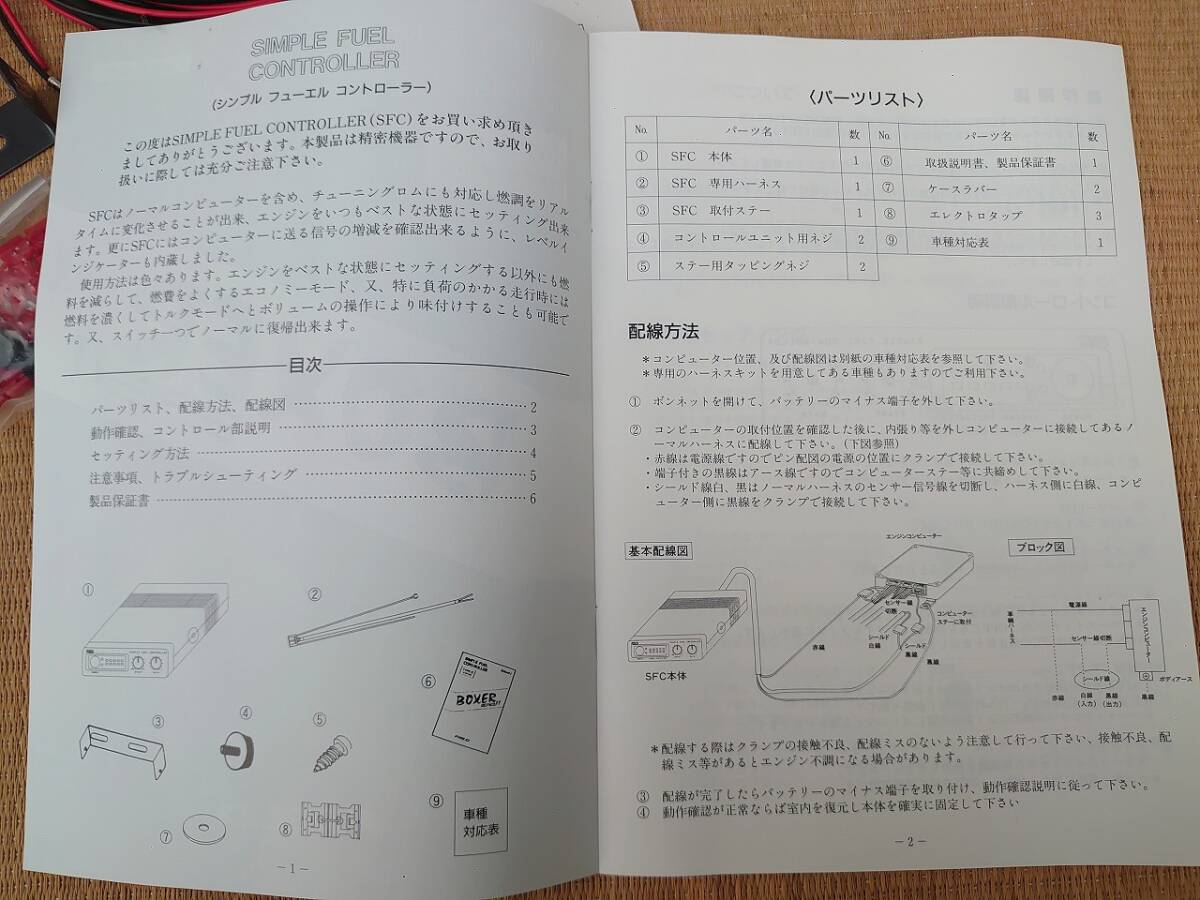 SIMPLE FUEL
CONTROLLER
(シンプル フューエル コントローラー)
この度はSIMPLE FUEL CONTROLLER(SFC)をお買い求め頂き
ましてありがとうございます。本製品は精密機器ですので、お取り
扱いに際しては充分ご注意下さい。
SFCはノーマルコンピューターを含め、チューニングロムにも対応し燃調をリアル
タイムに変化させることが出来、エンジンをいつもベストな状態にセッティング出来
ます。更にSFCにはコンピューターに送る信号の増減を確認出来るように、レベルイ
ンジケーターも内蔵しました。
使用方法は色々あります。エンジンをベストな状態にセッティングする以外にも燃
料を減らして、燃費をよくするエコノミーモード、又、特に負荷のかかる走行時には
燃料を濃くしてトルクモードへとボリュームの操作により味付けすることも可能で
す。又、スイッチ一つでノーマルに復帰出来ます。
目次
パーツリスト、配線方法、配線図 …… 2
動作確認、コントロール部説明 …… 3
セッティング方法 …… 4
注意事項、トラブルシューティング …… 5
製品保証書 …… 6
①
②
③
④
⑤
⑥
SIMPLE FUEL
CONTROLLER
BOXER
⑦
⑧
⑨
車種
対応表
－1－
〈パーツリスト〉
No. パーツ名 数 No. パーツ名 数
① SFC 本体 1 ⑥ 取扱説明書、製品保証書 1
② SFC 専用ハーネス 1 ⑦ ケースラバー 2
③ SFC 取付ステー 1 ⑧ エレクトロタップ 3
④ コントロールユニット用ネジ 2 ⑨ 車種対応表 1
⑤ ステー用タッピングネジ 2
配線方法
＊コンピューター位置、及び配線図は別紙の車種対応表を参照して下さい。
＊専用のハーネスキットを用意してある車種もありますのでご利用下さい。
① ボンネットを開けて、バッテリーのマイナス端子を外して下さい。
② コンピューターの取付位置を確認した後に、内張り等を外しコンピューターに接続してあるノ
ーマルハーネスに配線して下さい。(下図参照)
・赤線は電源線ですのでピン配図の電源の位置にクランプで接続して下さい。
・端子付きの黒線はアース線ですのでコンピューターステー等に共締めして下さい。
・シールド線白、黒はノーマルハーネスのセンサー信号線を切断し、ハーネス側に白線、コンピ
ューター側に黒線をクランプで接続して下さい。
基本配線図
エンジンコンピューター
センサー線
切断
コンピューター
ステーに取付
シールド
白線
シールド
黒線
赤線
黒線
SFC本体
ブロック図
車輌ハーネス
電源線
センサー線切断
エンジンコンピューター
シールド線
ボディアース
赤線
白線
(入力)
黒線
(出力)
黒線
＊配線する際はクランプの接触不良、配線ミスのないよう注意して行って下さい、接触不良、配
線ミス等があるとエンジン不調になる場合があります。
③ 配線が完了したらバッテリーのマイナス端子を取り付け、動作確認説明に従って下さい。
④ 動作確認が正常ならば室内を復元し本体を確実に固定して下さい
－2－